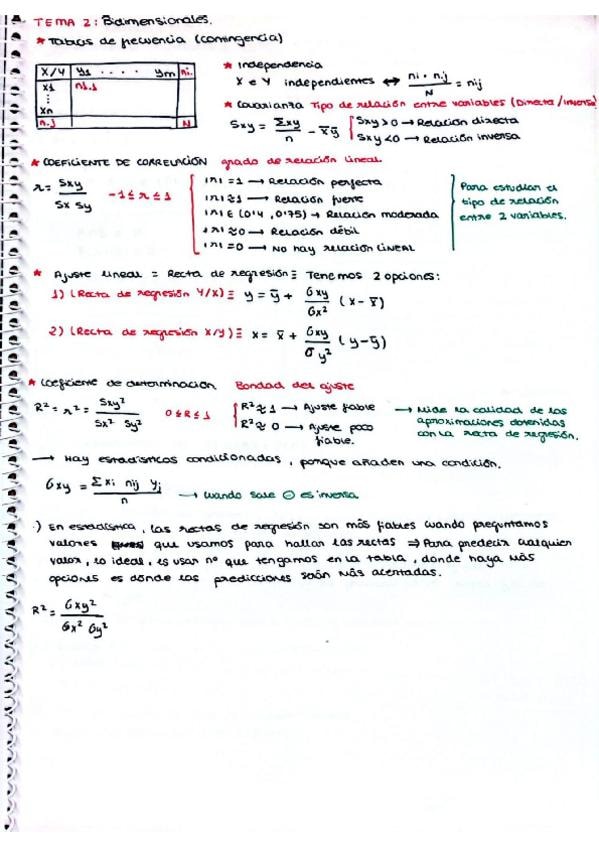 TEMA 2: Bidimensionales.
★ Tablas de frecuencia (contingencia)
X/Y y1 . . . . ym ni.
x1 n1.1
⋮
xn
n.j N
★ Independencia
X e Y independientes ↔ ni · n.j / N = nij
★ Covarianza Tipo de relación entre variables (Directa/inversa)
Sxy = Σxy / n - x̄ ȳ
Sxy>0 → Relación directa
Sxy<0 → Relación inversa
★ COEFICIENTE DE CORRELACIÓN grado de relación lineal
r = Sxy / Sx Sy
-1 ≤ r ≤ 1
|r| = 1 → Relación perfecta
|r| ≈ 1 → Relación fuerte
|r| ∈ (0'4, 0'75) → Relación moderada
|r| ≈ 0 → Relación débil
|r| = 0 → No hay relación LINEAL
Para estudiar el
tipo de relación
entre 2 variables.
★ Ajuste lineal = Recta de regresión ≡ Tenemos 2 opciones:
1) (Recta de regresión Y/X) ≡ y = ȳ + σxy / σx² (x - x̄)
2) (Recta de regresión X/Y) ≡ x = x̄ + σxy / σy² (y - ȳ)
★ Coeficiente de determinación Bondad del ajuste
R² = r² = Sxy² / Sx² Sy²
0 ≤ R ≤ 1
R² ≈ 1 → Ajuste fiable
R² ≈ 0 → Ajuste poco
fiable.
→ Mide la calidad de las
aproximaciones obtenidas
con la recta de regresión.
→ Hay estadísticos condicionados, porque añaden una condición.
σxy = Σ xi nij yj / n → cuando sale ⊖ es inversa
·) En estadística, las rectas de regresión son más fiables cuando preguntamos
valores que usamos para hallar las rectas ⇒ Para predecir cualquier
valor, lo ideal, es usar nº que tengamos en la tabla, donde haya más
opciones es donde las predicciones serán más acertadas.
R² = σxy² / σx² σy²